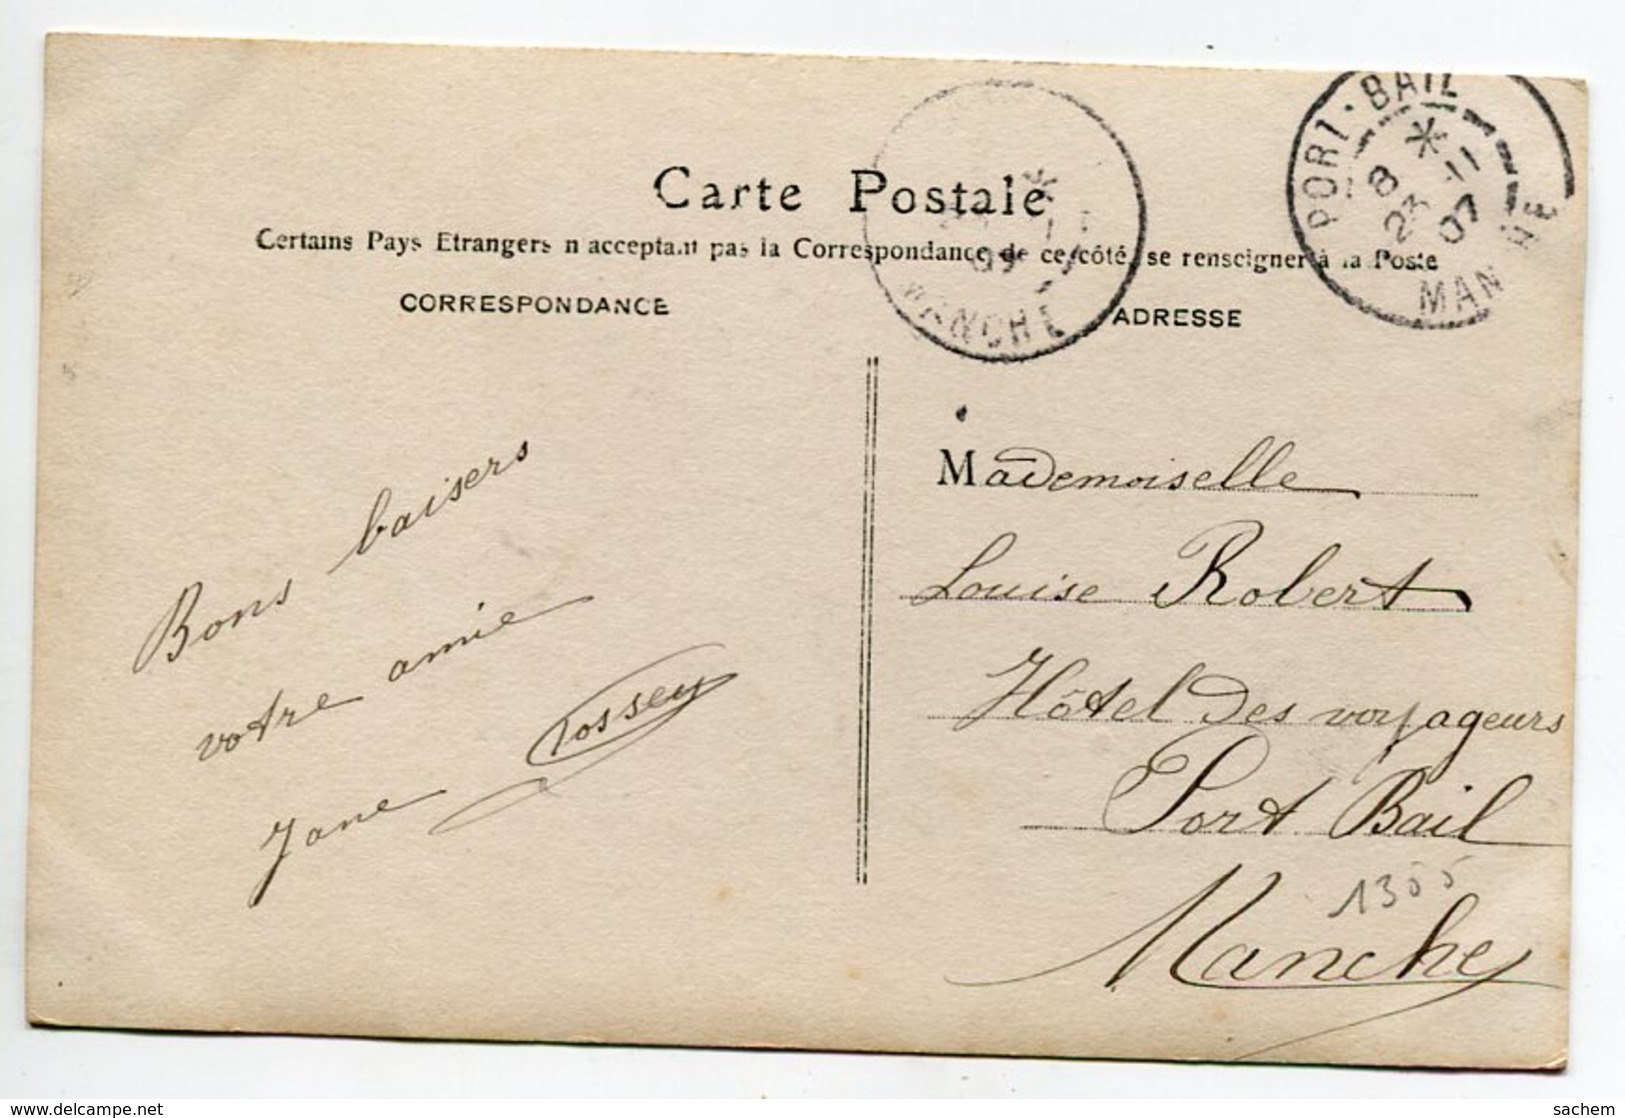 Carte Postale
Certains Pays Etrangers n'acceptant pas la Correspondance de ce côté, se renseigner à la Poste
CORRESPONDANCE
ADRESSE
PORT-BAIL
8
23 -11
07
MANCHE
MANCHE
Bons baisers
votre amie
Jane Tossey
Mademoiselle
Louise Robert
Hôtel des voyageurs
Port Bail
Manche
1355
delcampe.net
sachem